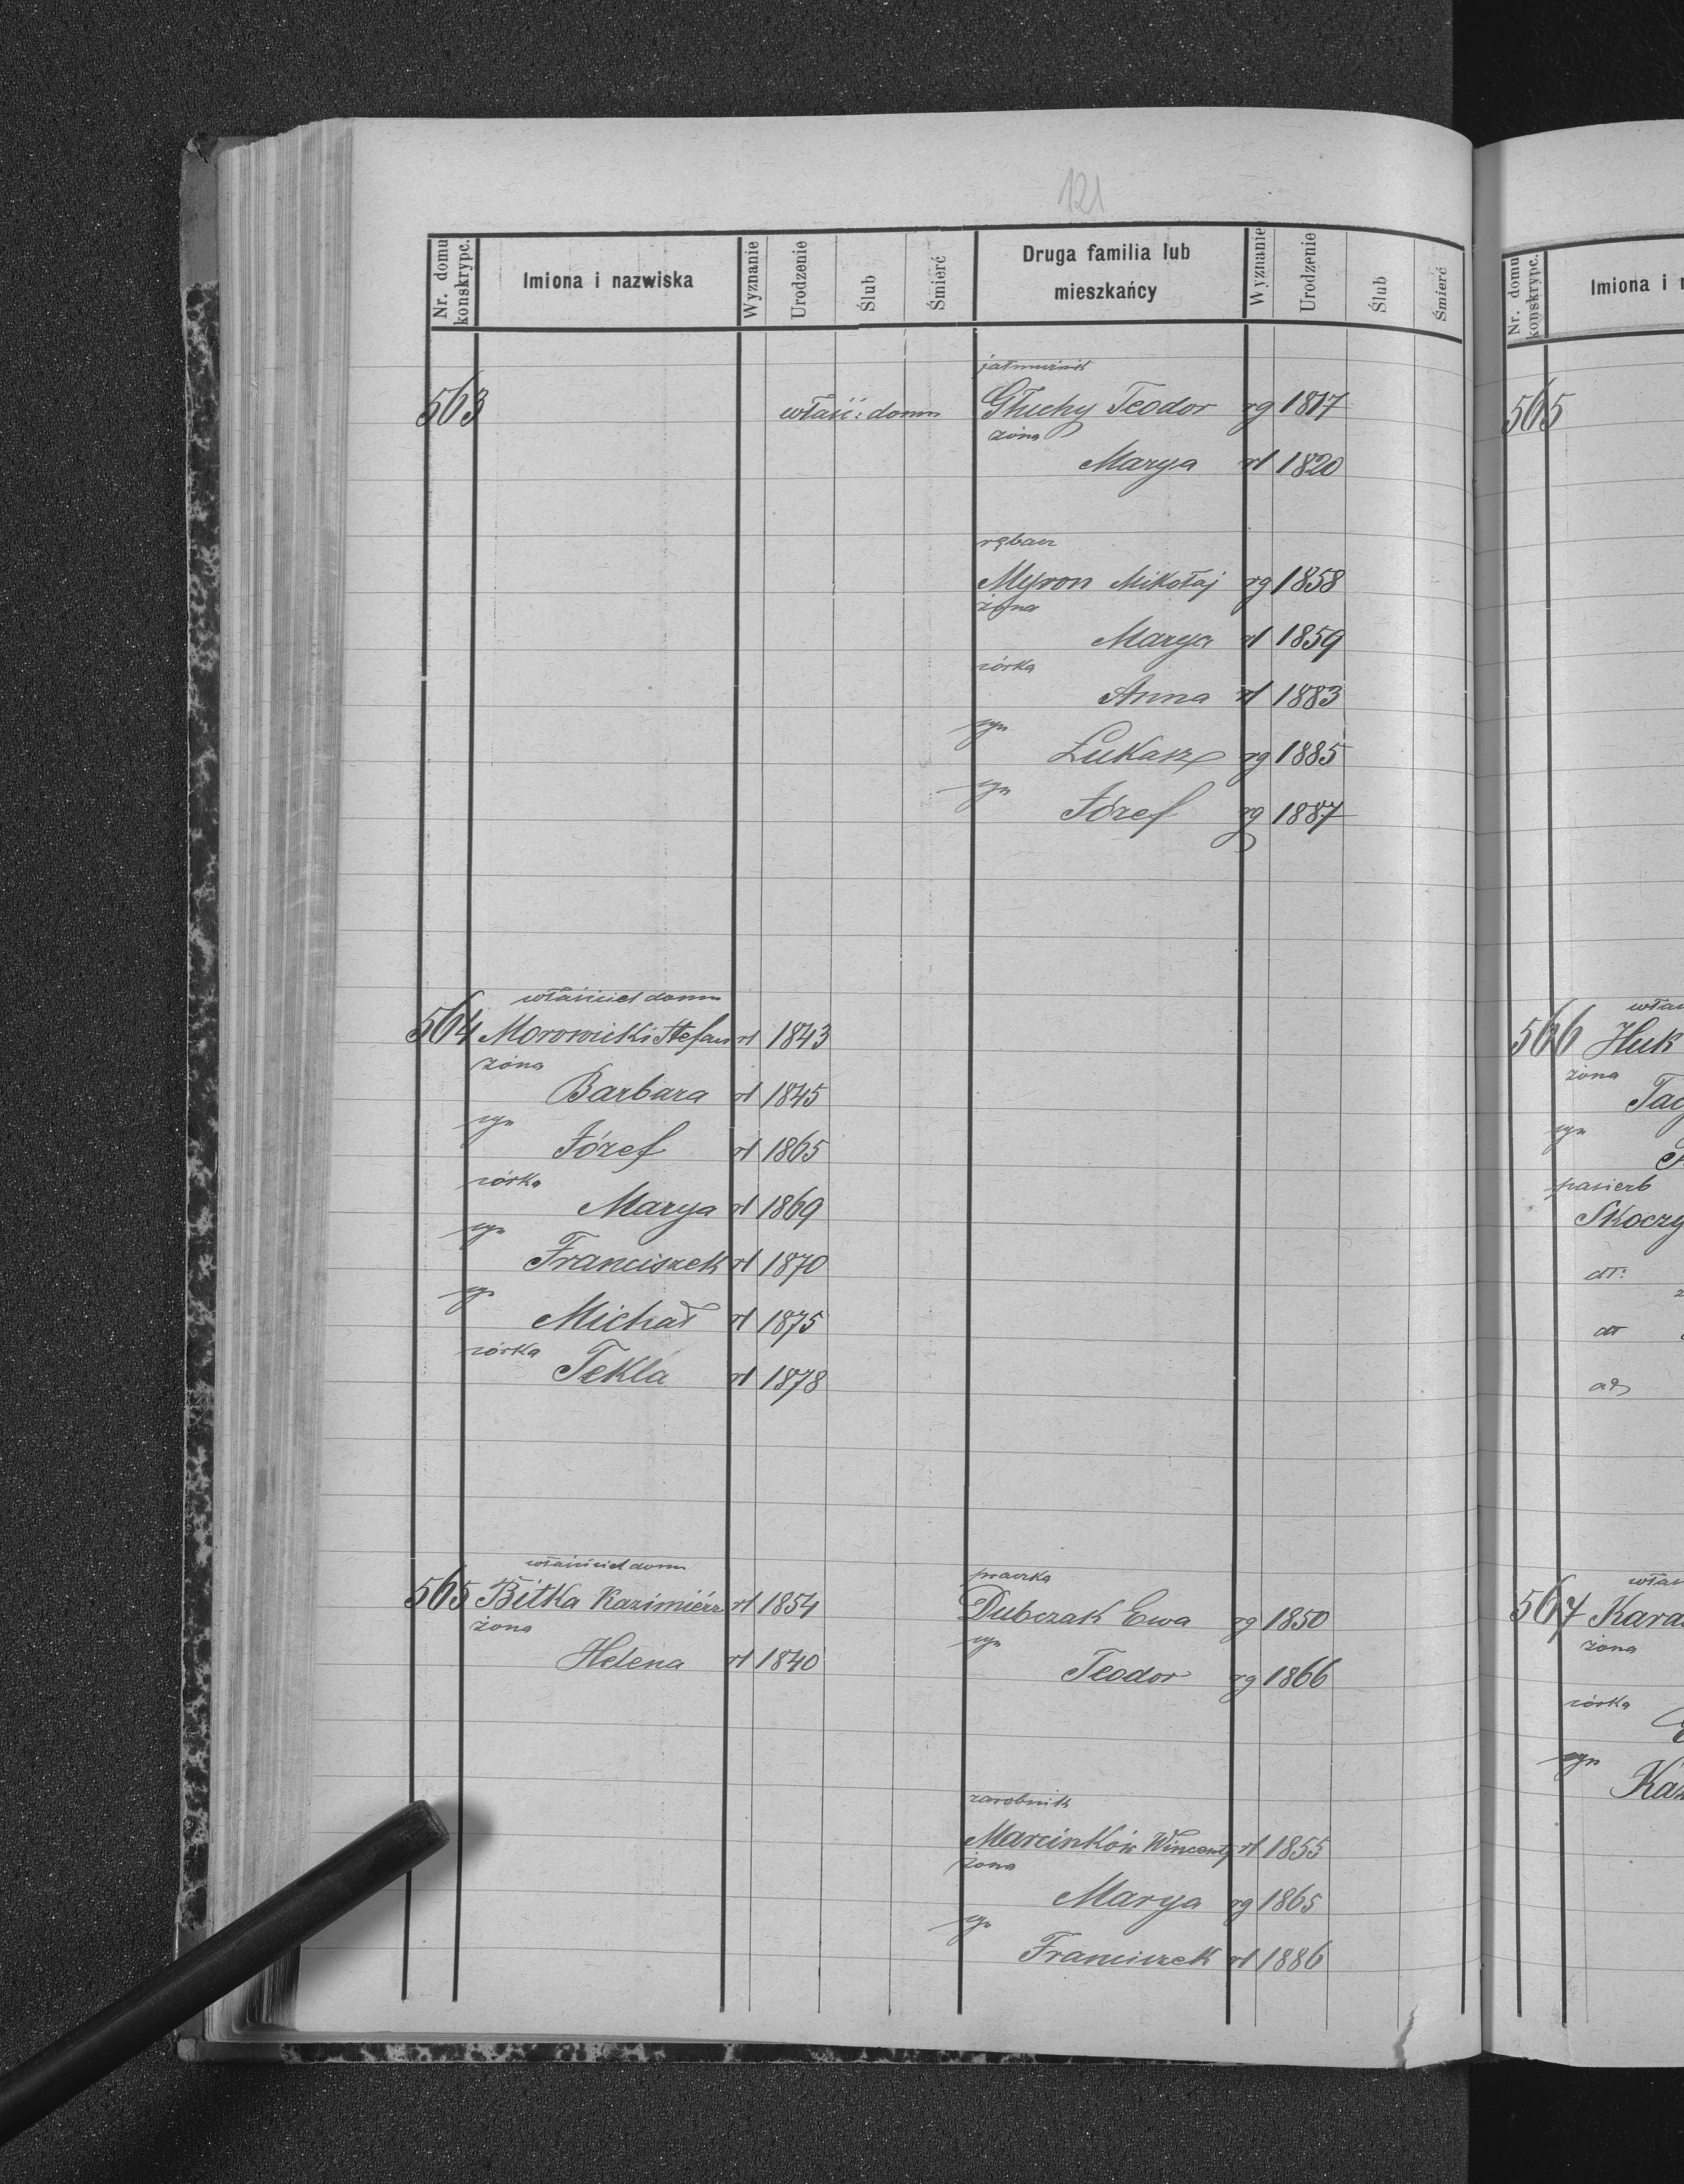 121
Nr. domu konskrypc. Imiona i nazwiska Wyznanie Urodzenie Ślub Śmierć Druga familia lub mieszkańcy Wyznanie Urodzenie Ślub Śmierć
jałmużnik
563 właść: domu Głuchy Teodor rg 1817
żona
Marya rł 1820
rębacz
Myron Mikołaj rg 1858
żona
Marya rł 1859
córka
Anna rł 1883
syn
Łukasz rg 1885
syn
Józef rg 1887
właściciel domu
564 Morowicki Stefan rł 1843
żona
Barbara rł 1845
syn
Józef rł 1865
córka
Marya rł 1869
syn
Franciszek rł 1870
syn
Michał rł 1875
córka
Tekla rł 1878
właściciel domu
565 Bitka Kazimiérz rł 1854
żona
Helena rł 1840
praczka
Dubczak Ewa rg 1850
syn
Teodor rg 1866
zarobnik
Marcinków Wincenty rł 1855
żona
Marya rg 1865
syn
Franciszek rł 1886
Nr. domu konskrypc. Imiona i
565
566 Huk
żona
syn
pasierb
Skoczy
dt:
dt
567 Kara
żona
córka
syn